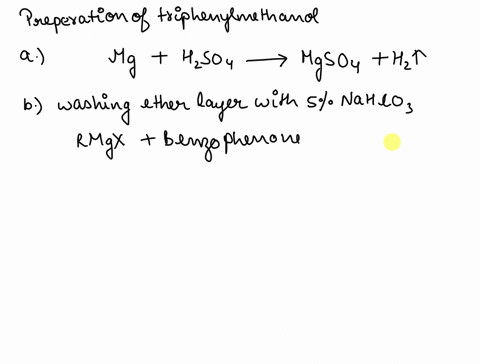 Preperation of triphenylmethanol
a.) Mg + H₂SO₄ ⟶ MgSO₄ + H₂↑
b.) washing ether layer with 5% NaHCO₃
RMgX + Benzophenone